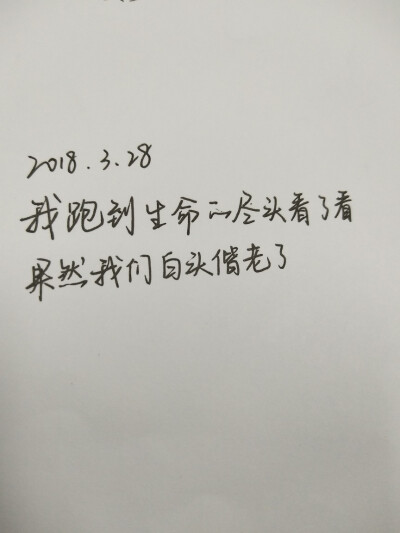 2018.3.28
我跑到生命的尽头看了看
果然我们白头偕老了